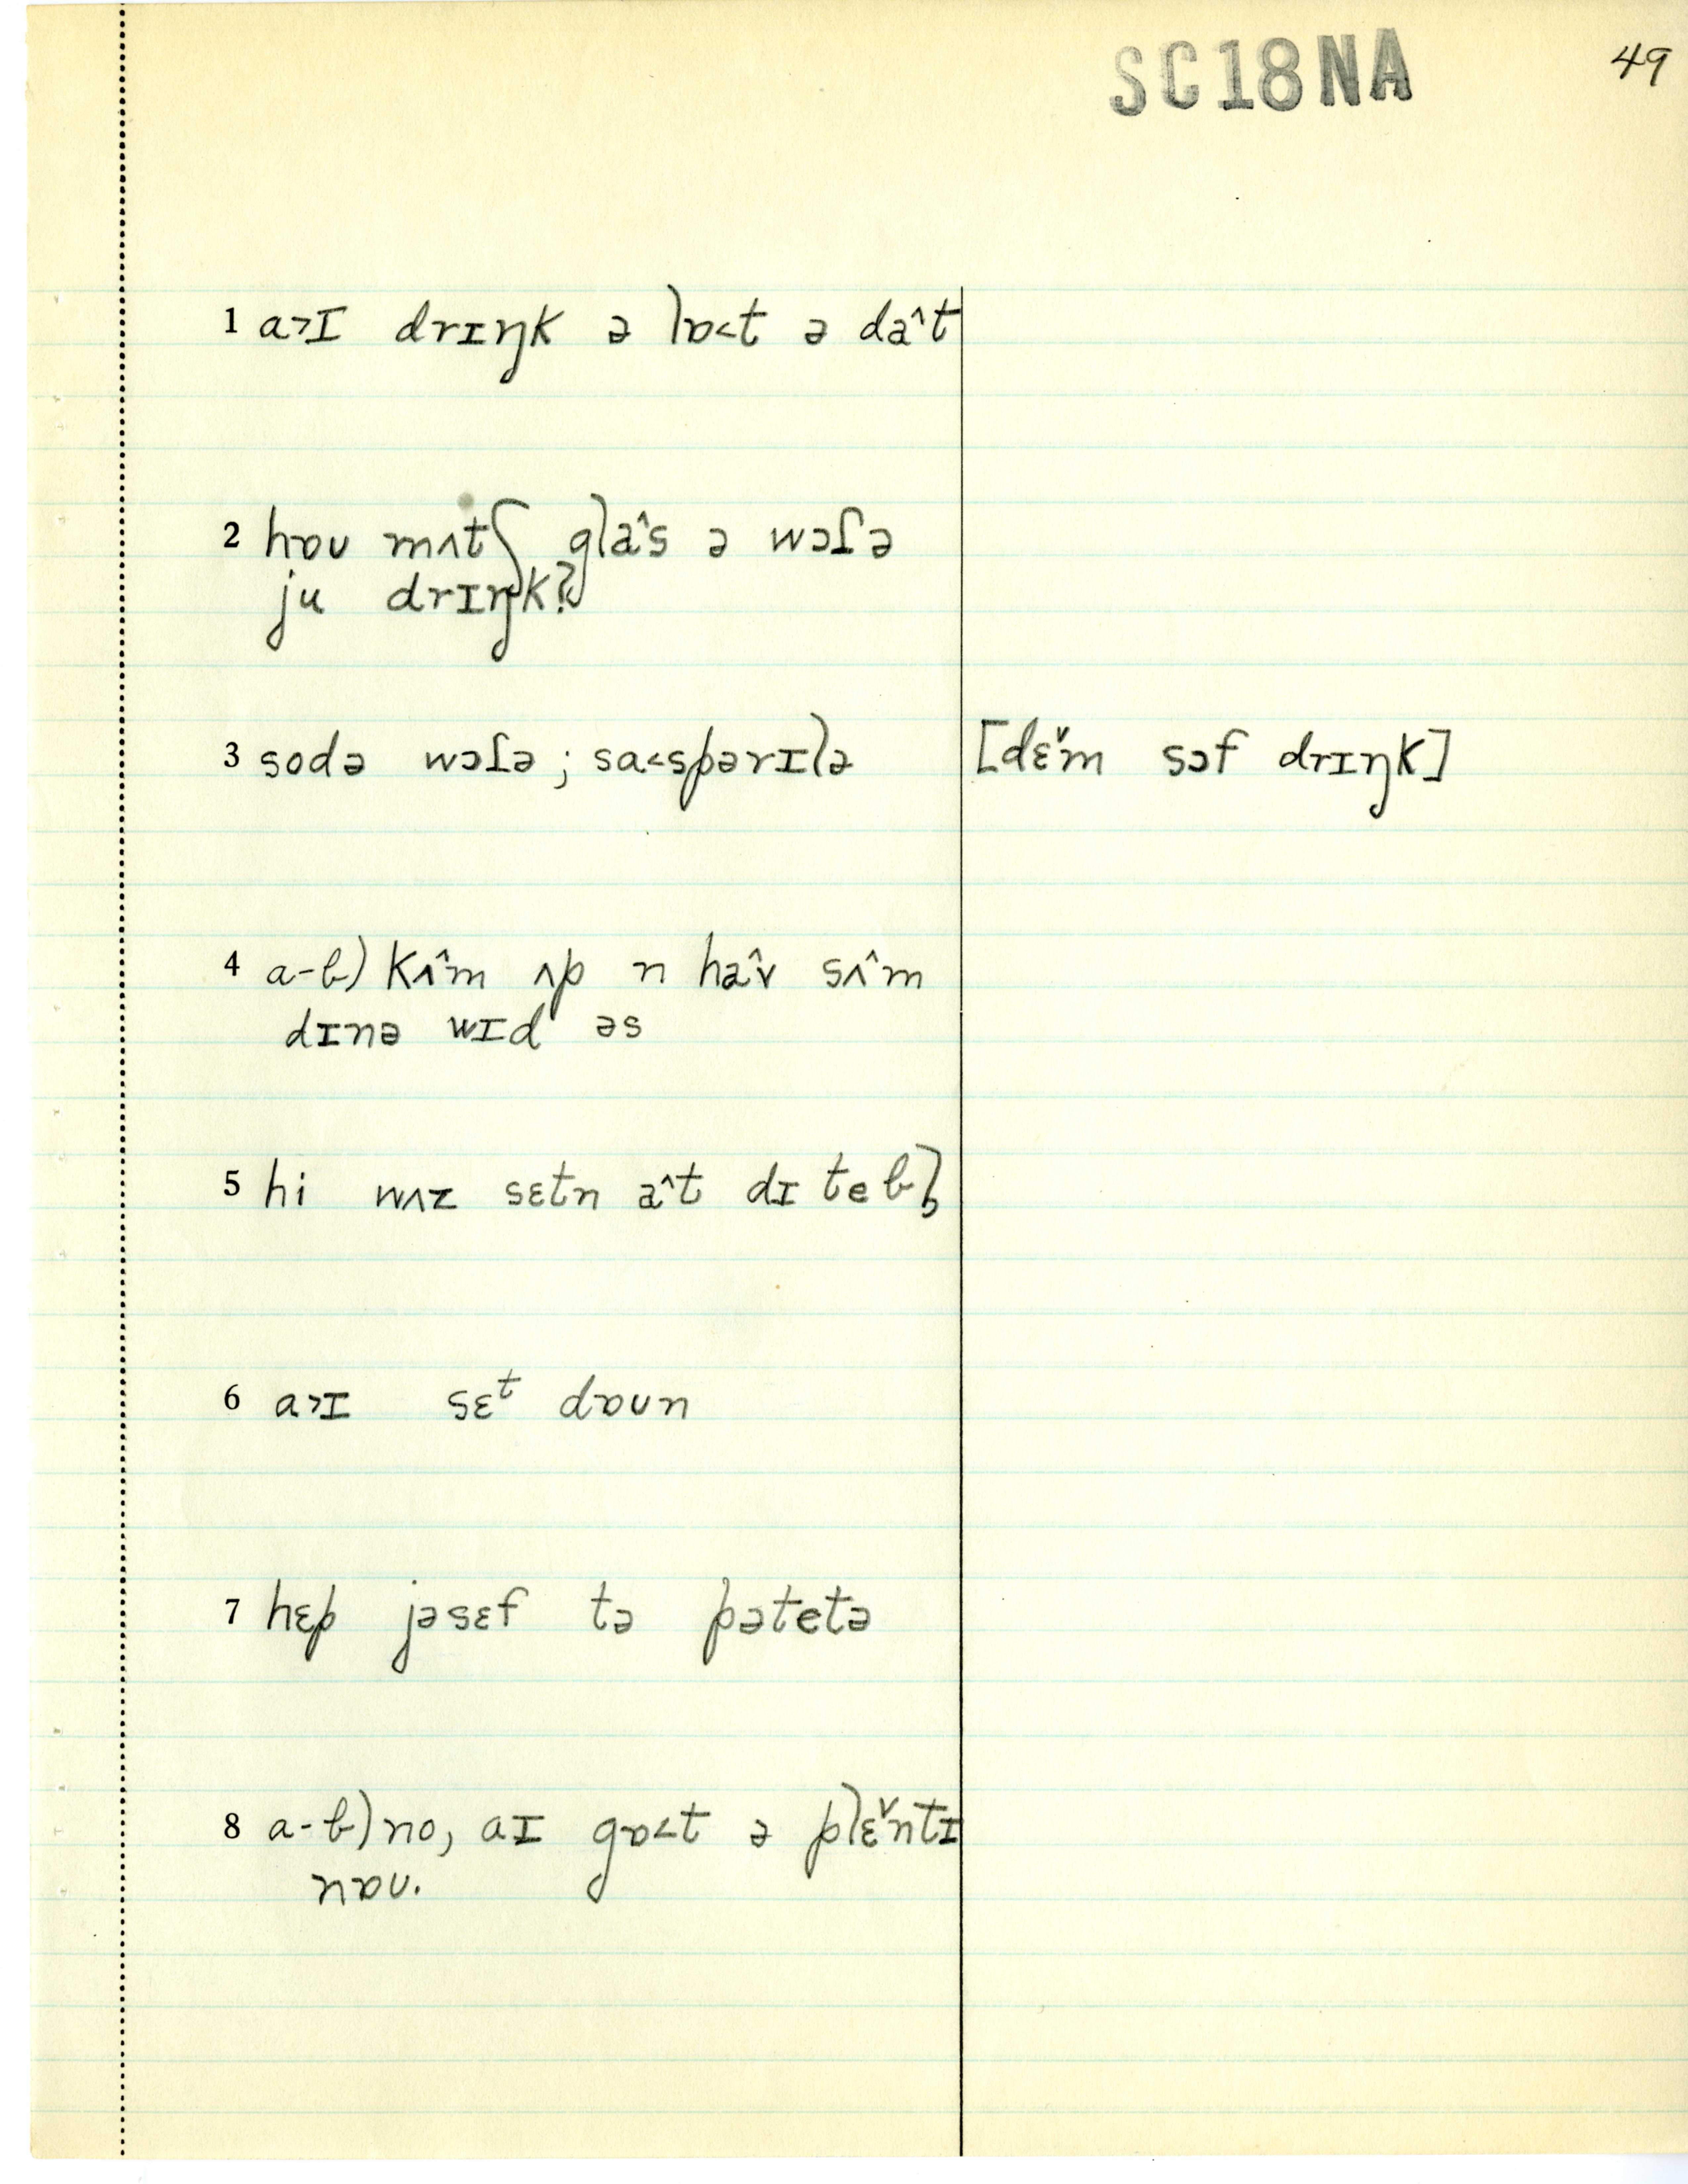 SC18NA 49
1 a˃ɪ drɪŋk ə lɒ˂t ə da^t
2 hɒʊ mʌtʃ gla^s ə wɔɾə
ju drɪŋk?
3 sodə wɔɾə; sa˂spərɪlə [dɛˇm sɔf drɪŋk]
4 a-b) kʌ^m ʌp n ha^v sʌ^m
dɪnə wɪd əs
5 hi wʌz sɛtn a^t dɪ tebl̥
6 a˃ɪ sɛᵗ dɒʊn
7 hɛp jəsɛf tə pətetə
8 a-b) no, aɪ gɒ˂t ə plɛˇntɪ
nɒʊ.